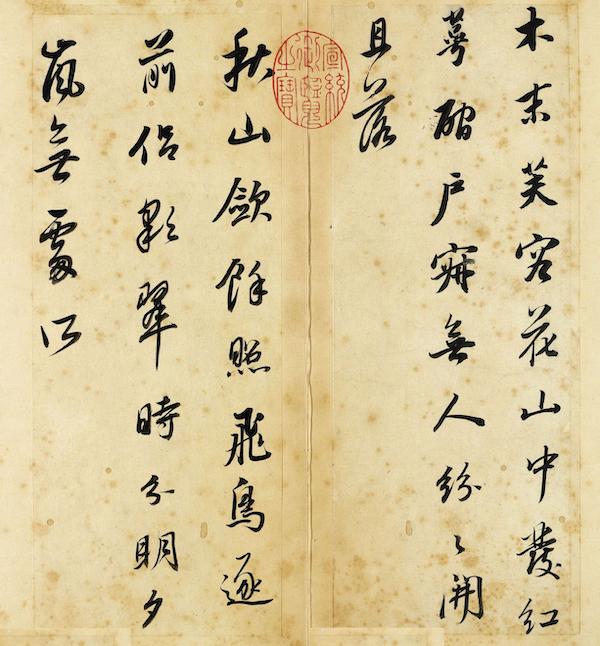 木末芙容花山中發紅
萼磵戶寂無人紛々開
且落
秋山歛餘照飛鳥逐
前侶彩翠時分明夕
嵐無處所
宣統御覽之寶